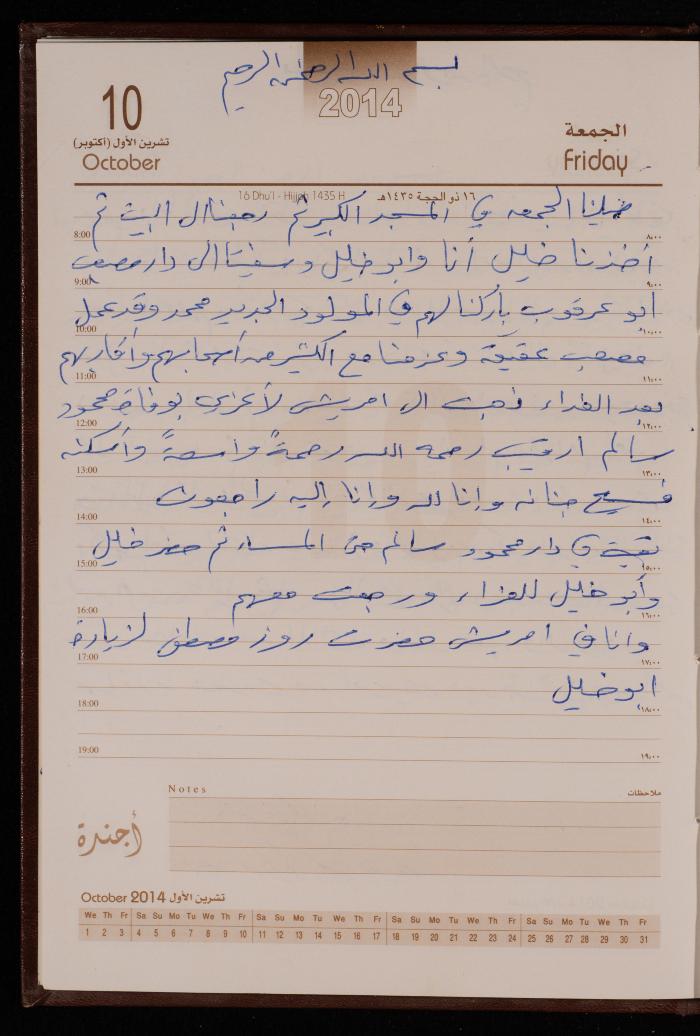 بسم الله الرحمن الرحيم
2014
10
تشرين الأول (أكتوبر)
October
الجمعة
Friday
16 Dhu'l - Hijjah 1435 H
١٦ ذو الحجة ١٤٣٥هـ
صلينا الجمعه في المسجد الكبير ثم رجعنا ال البيت ثم
8:00 ٨:٠٠
أخذنا خليل أنا وابو خليل و الى دار مصعب
9:00 ٩:٠٠
ابو عرقوب باركنا لهم في المولود الجديد محمد وقد عمل
10:00 ١٠:٠٠
مصعب عقيقة وعزمنا مع الكثير من أصحابهم وأقاربهم
11:00 ١١:٠٠
بعد الغداء ذهبت ال امريش لأعزي بوفاة محمود
12:00 ١٢:٠٠
سالم رحمه الله رحمةً واسعةً وأسكنه
13:00 ١٣:٠٠
فسيح جنانه وإنا لله وإنا إليه راجعون
14:00 ١٤:٠٠
بقيت في دار محمود سالم حتى المساء ثم حضر خليل
15:00 ١٥:٠٠
وأبو خليل للعزاء ورجعت معهم
16:00 ١٦:٠٠
وانا في امريش حضرت روز مصطفى لزيارة
17:00 ١٧:٠٠
ابو خليل
18:00 ١٨:٠٠
19:00 ١٩:٠٠
Notes ملاحظات
أجندة
October 2014 تشرين الأول
We Th Fr Sa Su Mo Tu We Th Fr Sa Su Mo Tu We Th Fr Sa Su Mo Tu We Th Fr Sa Su Mo Tu We Th Fr
1 2 3 4 5 6 7 8 9 10 11 12 13 14 15 16 17 18 19 20 21 22 23 24 25 26 27 28 29 30 31